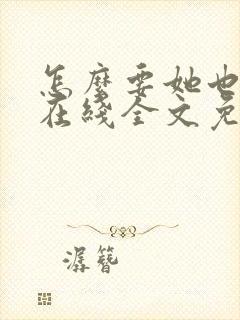 怎麼要她也
在綫全文免
潺簪